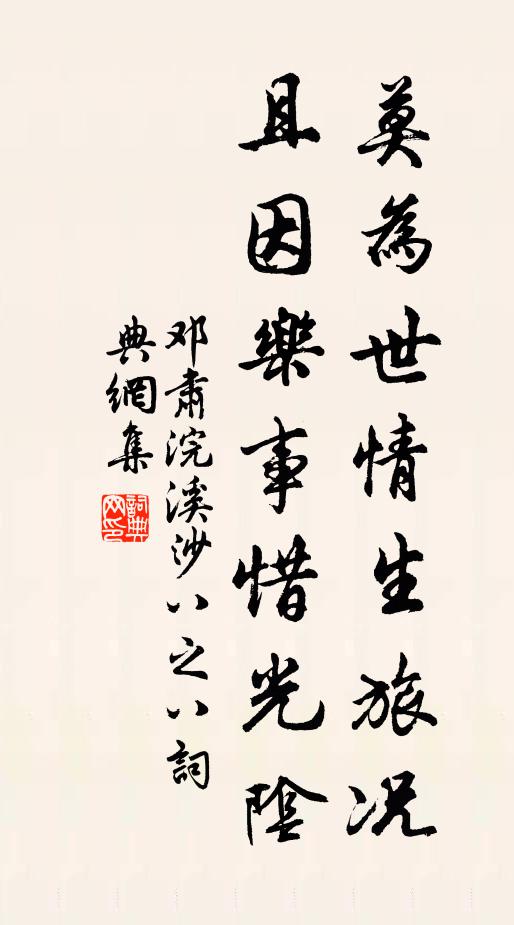 莫為世情生旅况
且因樂事惜光陰
邓肅浣溪沙八之八詞
典網集
詞典網印